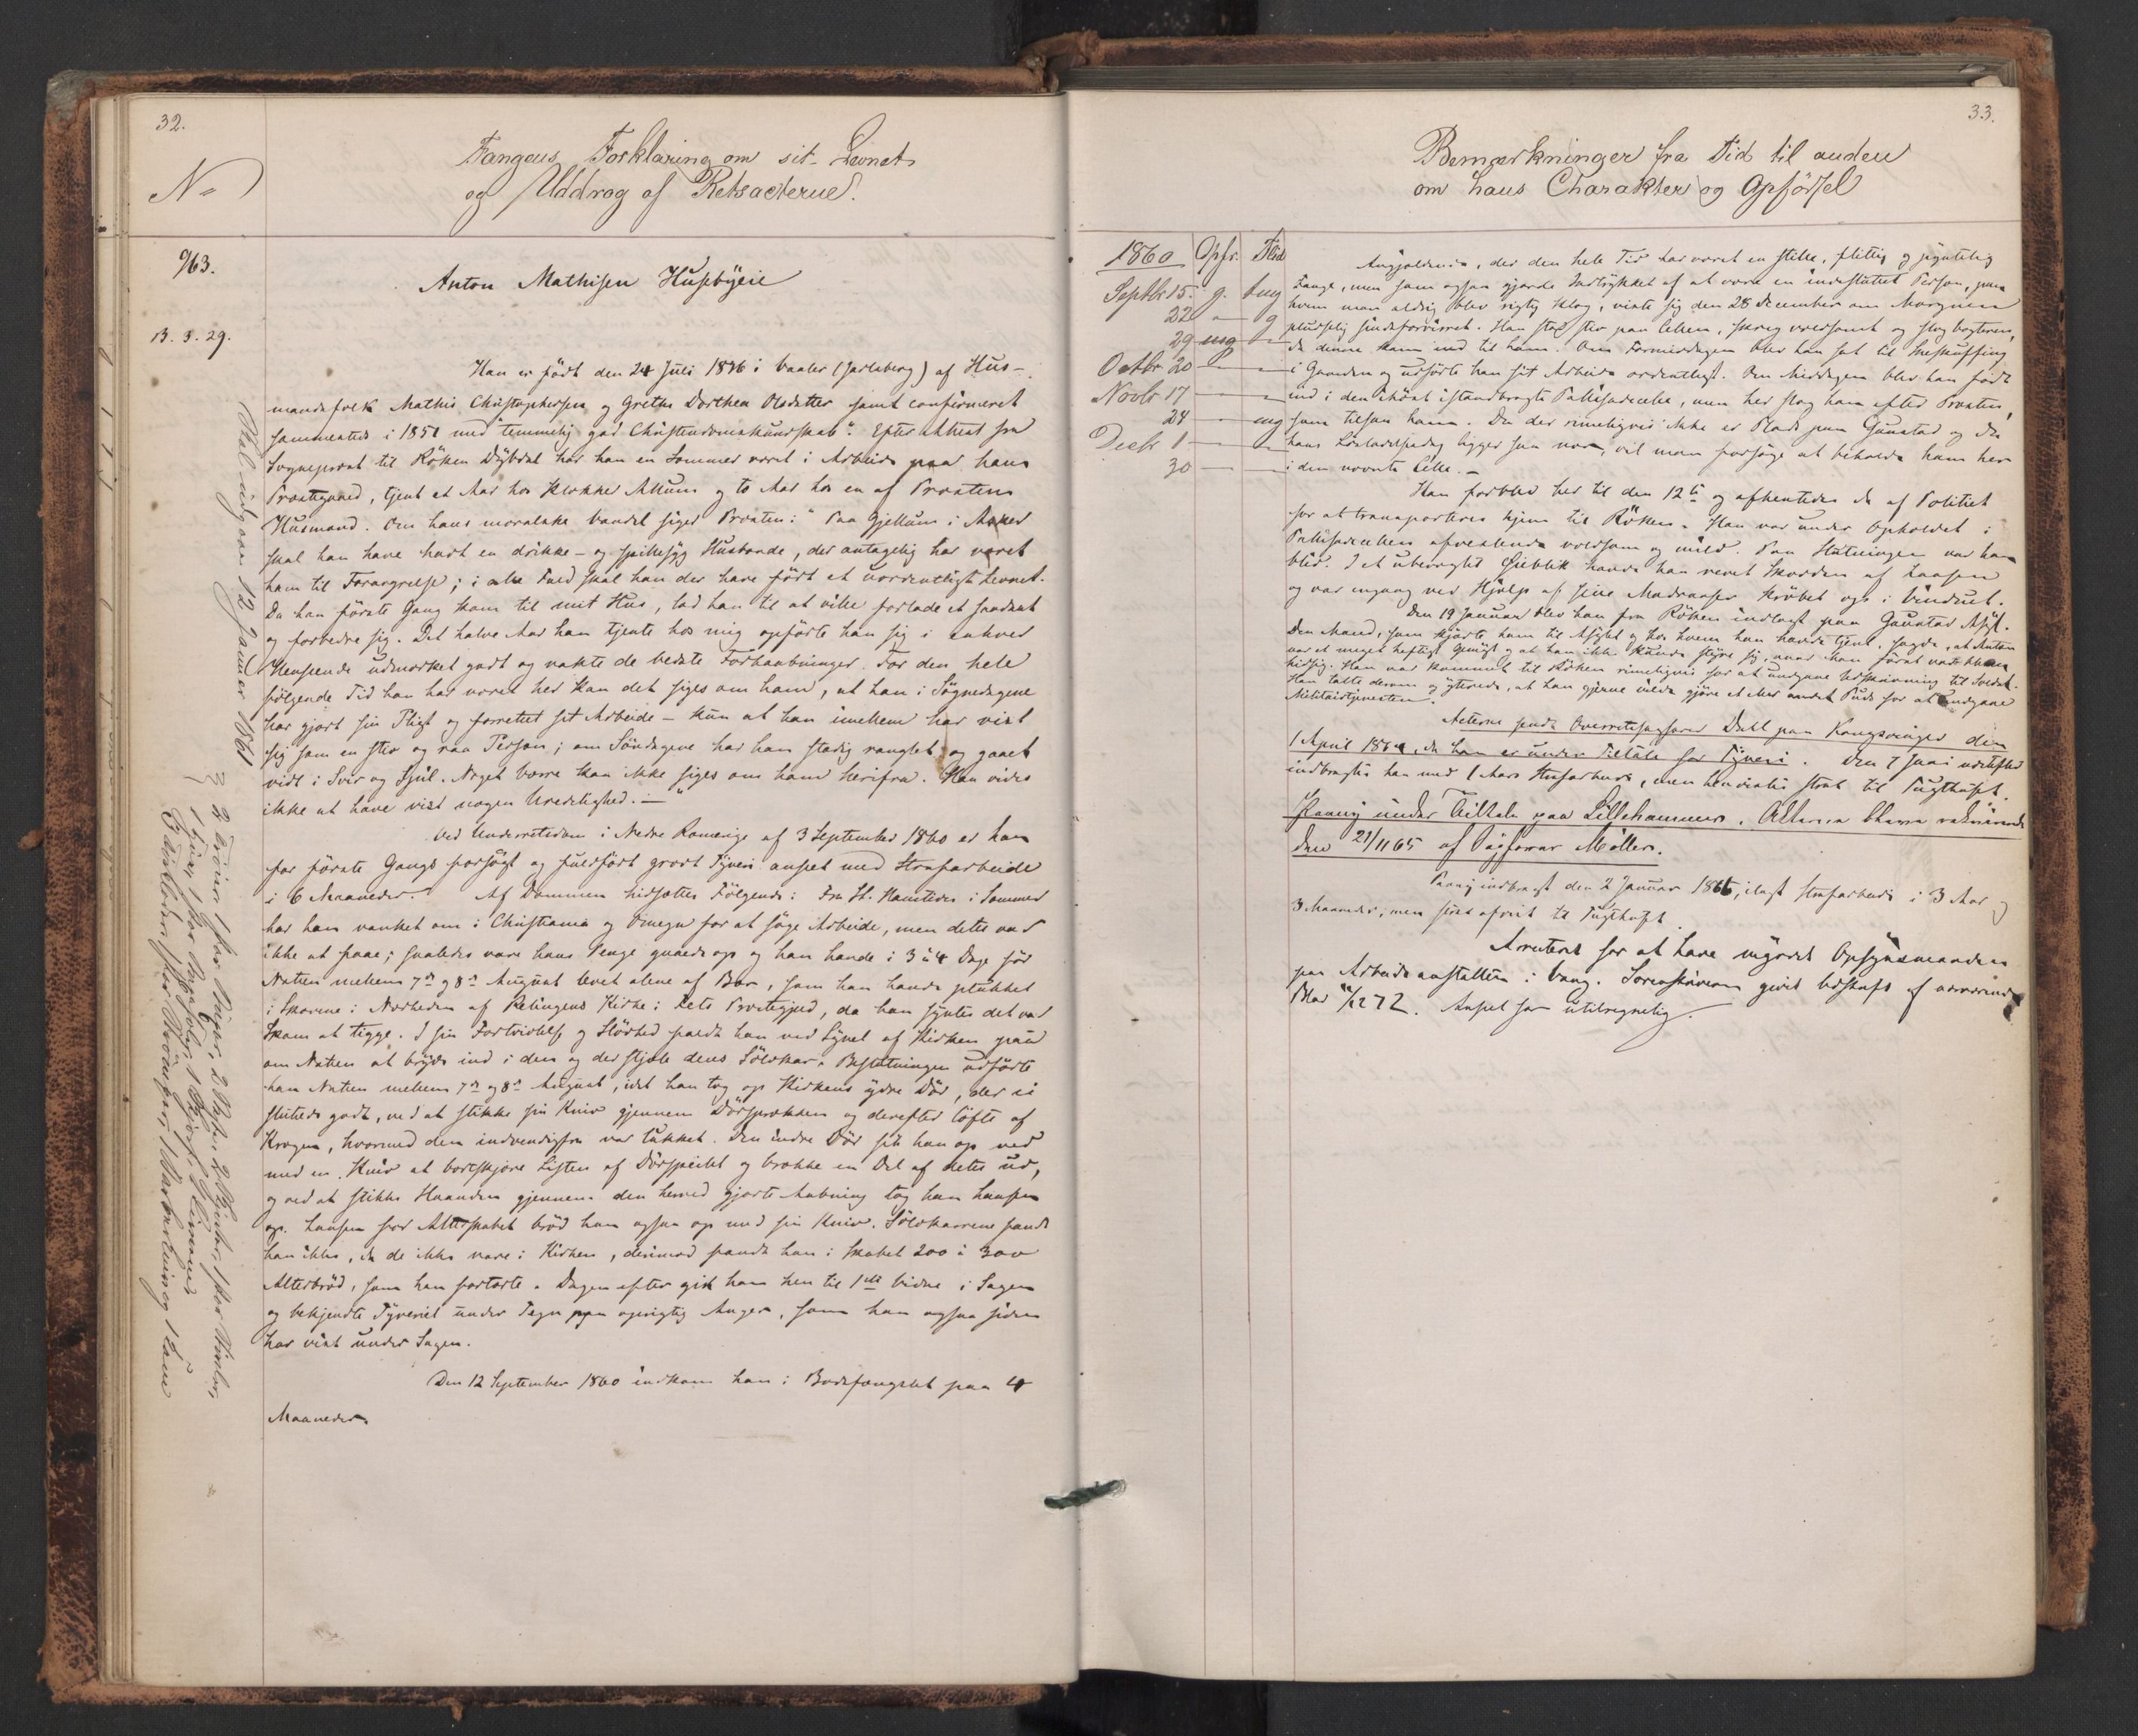 32.
Fangens Forklaring om sit Levnet
og Uddrag af Retsacterne.
No
963.
Anton Mathisen Husebyeie
B. 3. 29.
Han er født den 24 Juli 1836 i Vaaler (Jarlsberg) af Hus-
mandsfolk Mathis Christophersen og Grethe Dorthea Olsdatter samt confirmeret
sammesteds i 1851 med "temmelig god Christendomskundskab". Efter Attest fra
Sogneprest til Røken Dybdal har han en Sommer været i Arbeide paa hans
Præstegaard, tjent et Aar hos Klokker Allum og to Aar hos en af Præstens
Husmænd. Om hans moralske Vandel siger Præsten: "Paa Gjellum i Asker
skal han have havt en drikke- og spillesyg Husbonde, der antagelig har været
ham til Forargelse; i alle Fald skal han der have ført et uordentligt Levnet.
Da han første Gang kom til mit Hus, lod han til at ville forlade et saadant
og forbedre sig. Det halve Aar han tjente hos mig opførte han sig i enhver
Henseende udmærket godt og vakte de bedste Forhaabninger. For den hele
følgende Tid han har været her kan det siges om ham, at han i Søgnedagene
har gjort sin Pligt og forrettet sit Arbeide - kun at han imellem har vist
sig som en stiv og raa Person; om Søndagene har han stadig ranglet og gaaet
vidt i Svir og Sjul. Noget værre kan ikke siges om ham herifra. Han vides
ikke at have vist nogen Uredelighed. -"
Ved Underretsdom i Nedre Romerige af 3 September 1860 er han
for første Gangs forsøgt og fuldført grovt Tyveri anseet med Strafarbeide
i 6 Maaneder. Af Dommen hidsættes Følgende: Fra St. Hanstider i Sommer
har han vanket om i Christiania og Omegn for at søge Arbeide, men dette var
ikke at faae; saaledes vare hans Penge gaaede op og han havde i 3 à 4 Dage før
Natten mellem 7de og 8de August levet alene af Bær, som han havde plukket
i Skovene i Nærheden af Rælingens Kirke i Fets Præstegjeld, da han syntes det var
Skam at tigge. I sin Fortvivlelse og Sløvhed faldt han ved Synet af Kirken paa
om Natten at bryde ind i den og der stjæle dens Sølvkar. Beslutningen udførte
han Natten mellem 7de og 8de August, idet han tog op Kirkens ydre Dør, der ei
sluttede godt, ved at stikke sin Kniv gjennem Dørsprækken og derefter løfte af
Krogen, hvormed den indvendigfra var lukket. Den indre Dør fik han op ved
med en Kniv at bortskjære Listen af Dørspeilet og brække en Del af dette ud,
og ved at stikke Haanden gjennem den herved gjorte Aabning tog han Laasen
op. Laasen for Alterskabet brød han ogsaa op med sin Kniv. Sølvkarrene fandt
han ikke, da de ikke vare i Kirken, derimod fandt han i Skabet 200 à 300
Alterbrød, som han fortærte. Dagen efter gik han hen til 1ste Vidne i Sagen
og bekjendte Tyveriet under Tegn paa oprigtig Anger, som han ogsaa siden
har vist under Sagen.
Den 12 September 1860 indkom han i Bodsfængslet paa 4
Maaneder.
Skal udgaae 12 Januar 1861
2 Trøier, 1 Par Buxer, 2 Veste, 2 Skjorter, 1 Par
33.
Bemærkninger fra Tid til anden
om hans Charakter og Opførsel
1860 Opf. Flid
Septbr 15. g. tmg
22 — g
29 mg —
Octbr 20 — —
Novbr 17 — —
24 — mg
Decbr 1 — —
30 — —
Angjældende, der den hele Tid har været en stille, flittig og
Fange, men som ogsaa gjorde Indtrykket af at være en indesluttet Person, paa
hvem man aldrig blev rigtig klog, viste sig den 28 December om Morgenen
pludselig sindsforvirret. Han stod stiv paa Cellen, skreg voldsomt og slog Vogteren,
da denne kom ind til ham. Om Formiddagen blev han sat til Sneskuffing
i Gaarden og udførte han sit Arbeide ordentligt. Om Middagen blev han ført
ind i den istandbragte Pallisadecelle, men her slog han efter Præsten,
som tilsaa ham. Da der rimeligvis ikke er Plads paa Gaustad og da
hans Løsladelsesdag ligger saa nær, vil man forsøge at beholde ham her
i den nævnte Celle. -
Han forblev her til den 12te og afhentedes da af Politiet
for at transporteres hjem til Røken. Han var under Opholdet i
Pallisadecellen afvexlende voldsom og mild. Paa Slutningen var han
blid. I et ubevogtet Øieblik havde han revet Skodden af Laasen
og var engang ved Hjælp af sine Madrasser krøbet op i Vinduet.
Den 19 Januar blev han fra Røken indlagt paa Gaustad Asyl.
Den Mand, som kjørte ham til Asylet og hos hvem han havde tjent, sagde, at Anton
var et meget heftigt Gemyt og at han ikke kunde styre sig, naar han først var bleven
hidsig. Han var kommet til Røken rimeligvis for at undgaae Udskrivning til Soldat.
Han talte derom og ytrede, at han gjerne vilde gjøre et eller andet Puds for at undgaae
Militairtjenesten.
Acterne sendt Overretssagfører Dahl paa Kongsvinger den
1 April 1864, da han er under Tiltale for Tyveri. Den 7 Juni
indbragtes han med 1 Aars Strafarbeide, men henvistes strax til Tugthuset.
Paany under Tiltale paa Lillehammer. Akterne bleve
den 21/11 65 af Sagfører Møller.
Paany indbragt den 2 Januar 1866, ilagt Strafarbeide i 3 Aar og
3 Maaneder, men strax afsendt til Tugthuset.
Arresteret for at have myrdet Opsynsmanden
paa Arbeidsanstalten i Vang. Sorenskriveren givet Udskrift af nærværende
Blad /12 72. Anseet som utilregnelig.